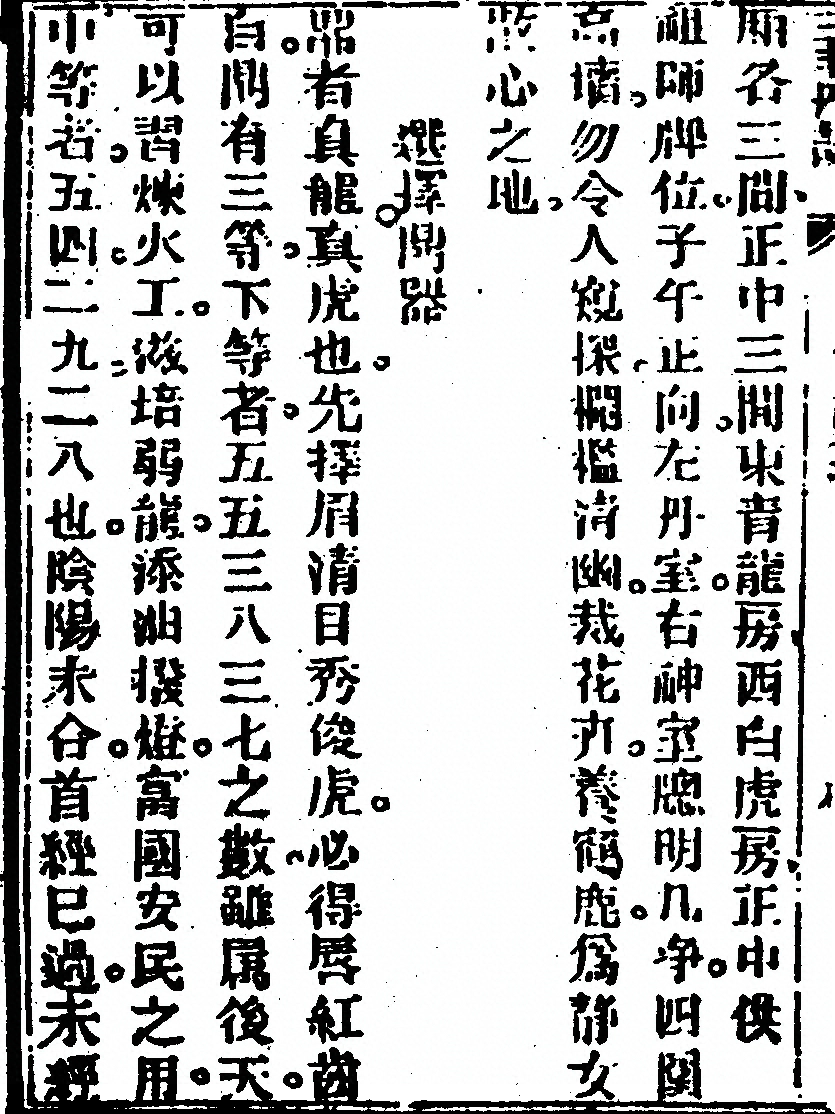 廟名三間正中三間東青龍房西白虎房正中供
祖師牌位子午正向左丹室右神室牕明几净四圍
高墻勿令人窺探欄檻清幽栽花卉養鶴鹿爲靜女
心之地
選擇鼎器
鼎者真龍真虎也先擇眉清目秀俊虎必得唇紅齒
白鼎有三等下等者五五三八三七之數雖属後天
可以習煉火工滋培弱龍添油撥燈富國安民之用
中等者五四二九二八也陰陽未合首經已過未經